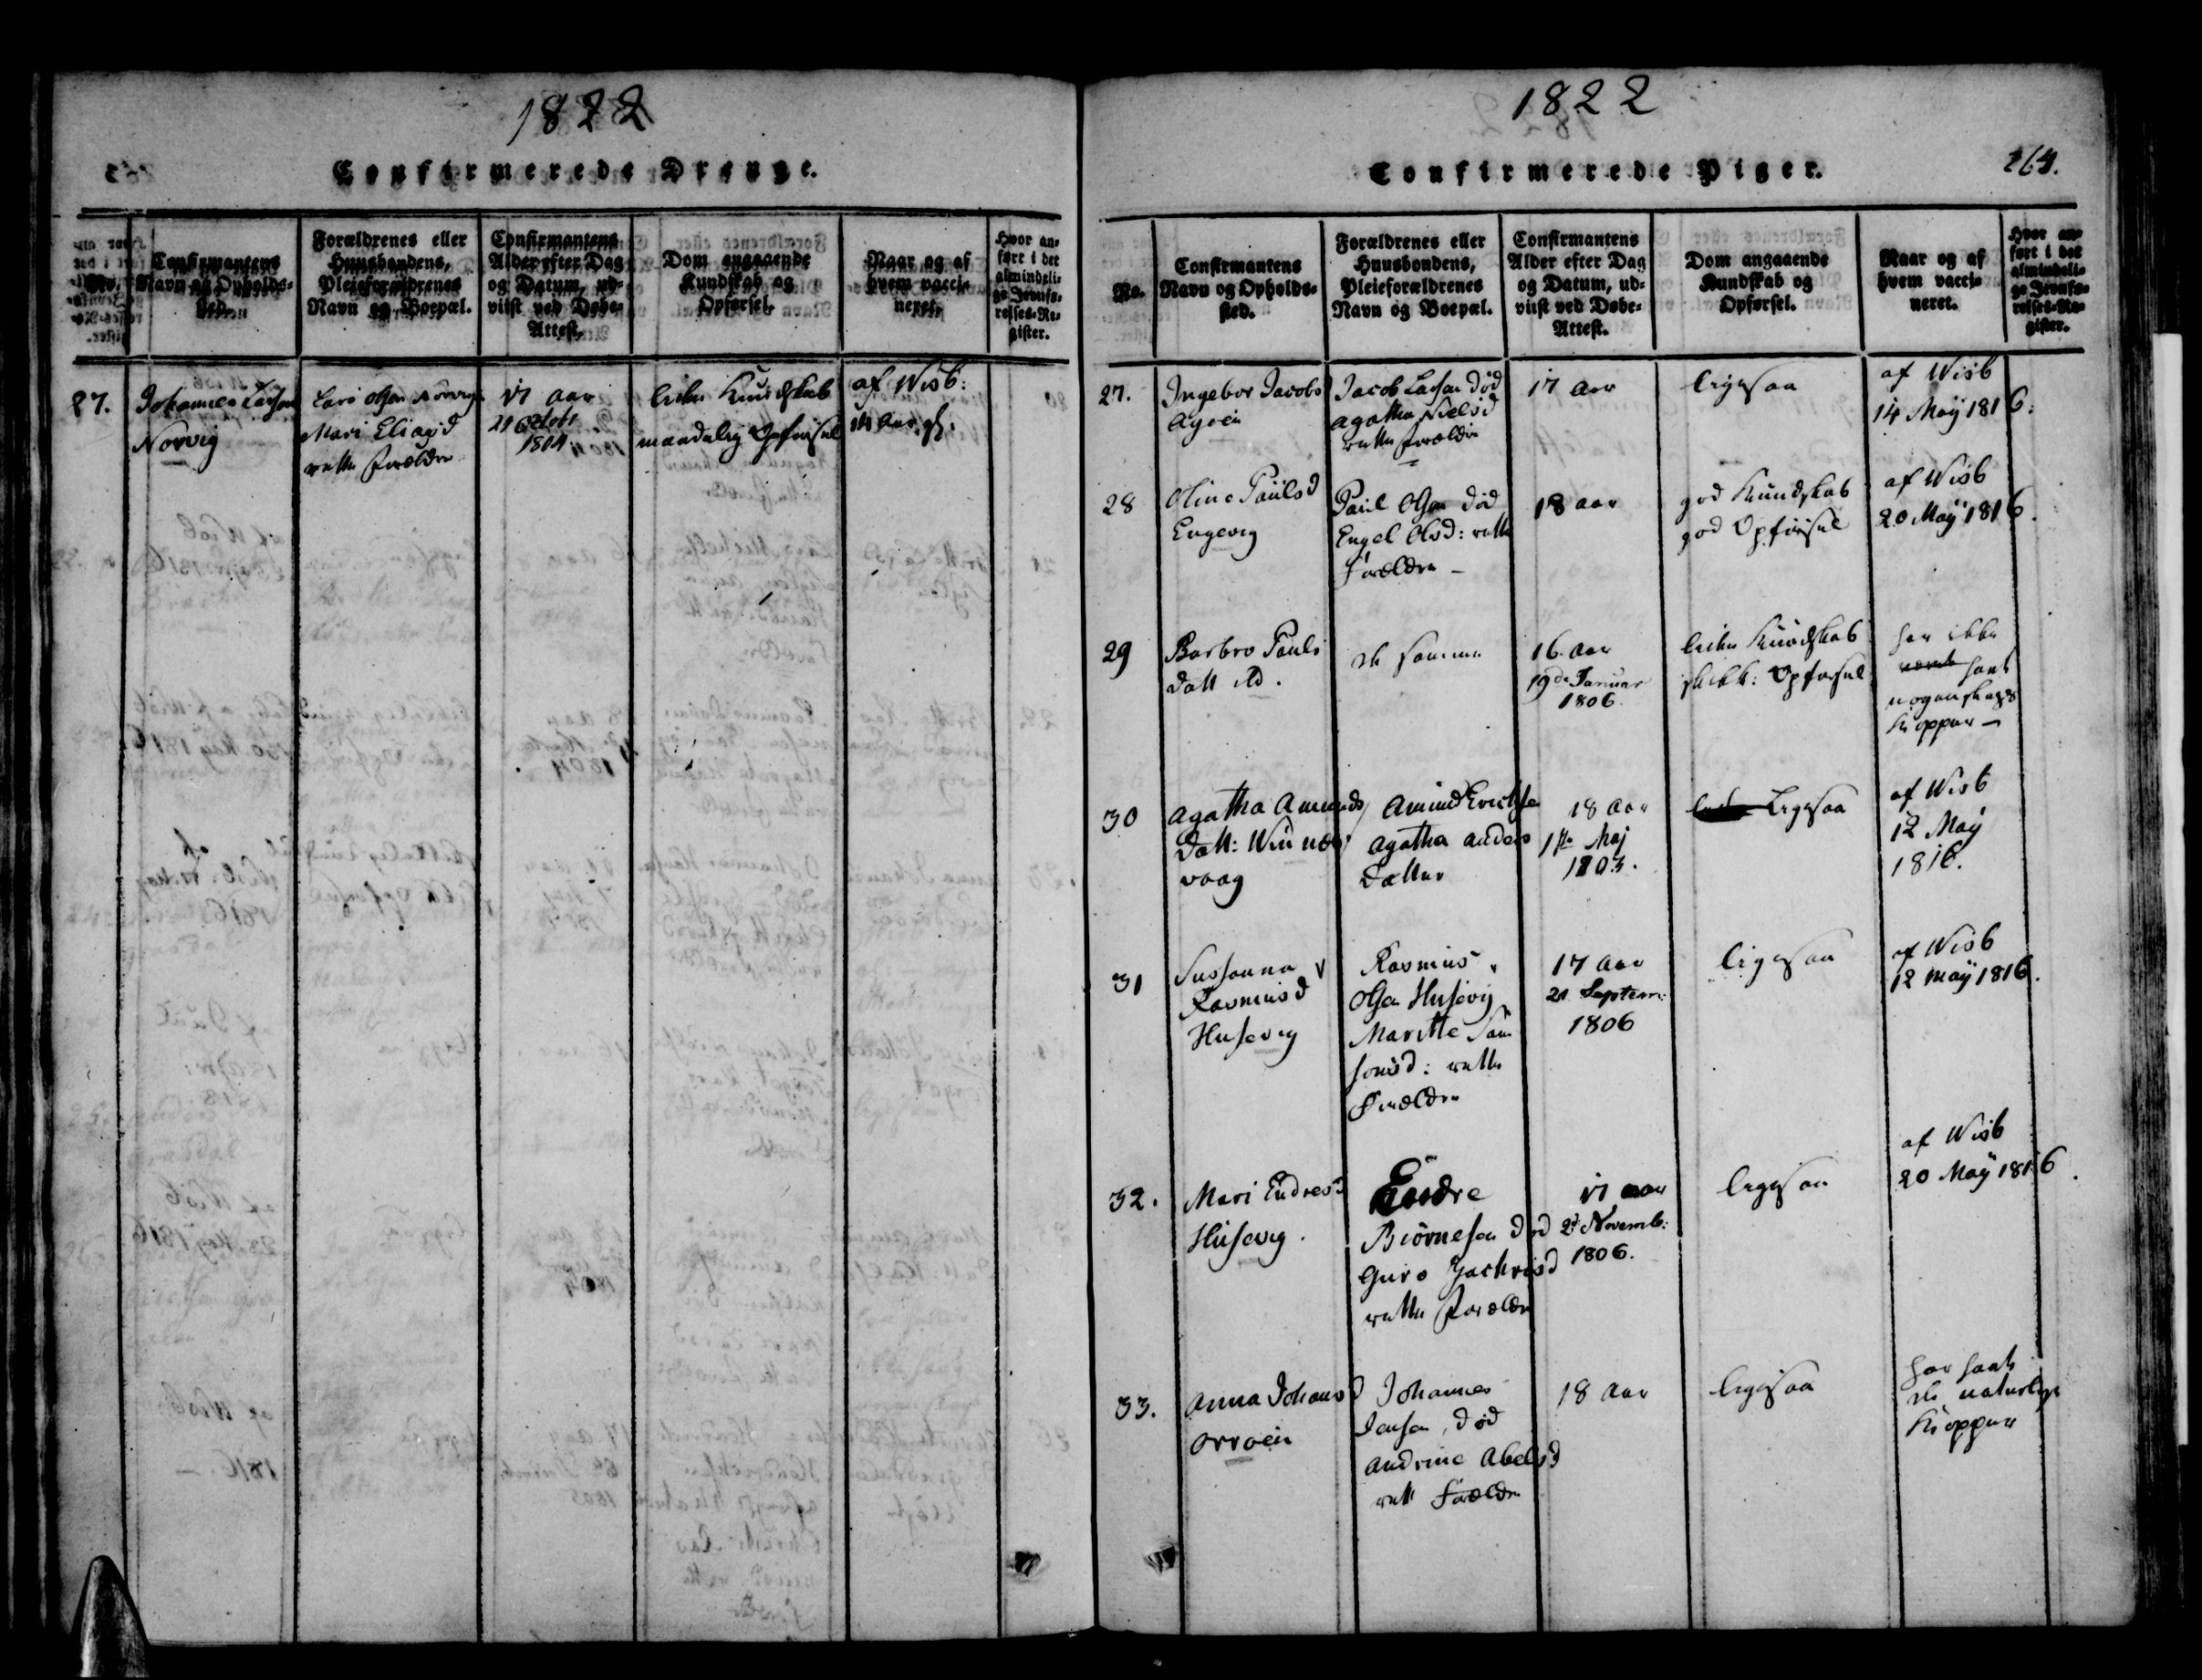 1822
Confirmerede Drenge.
No.
Confirmantens
Navn og Opholds-
sted.
Forældrenes eller
Huusbondens,
Pleieforældrenes
Navn og Boepæl.
Confirmantens
Alder efter Dag
og Datum, ud-
viist ved Døbe-
Attest.
Dom angaaende
Kundskab og
Opførsel.
Naar og af
hvem vacci-
neret.
Hvor an-
ført i det
almindeli-
ge Jevnfø-
relses-Re-
gister.
27.
Johannes Larsen
Norvig
Lars Olsen Norvig
Mari Eliasd
rette Forældre
17 aar
21 Octobr
1804
liden Kundskab
maadelig Opførsel
af Wisb:
14 Aar gl.
1822
264.
Confirmerede Piger.
No.
Confirmantens
Navn og Opholds-
sted.
Forældrenes eller
Huusbondens,
Pleieforældrenes
Navn og Boepæl.
Confirmantens
Alder efter Dag
og Datum, ud-
viist ved Døbe-
Attest.
Dom angaaende
Kundskab og
Opførsel.
Naar og af
hvem vacci-
neret.
Hvor an-
ført i det
almindeli-
ge Jevnfø-
relses-Re-
gister.
27.
Ingebor Jacobs
Agøen
Jacob Larsen død
Agatha Nielsd
rette Forældre
17 aar
ligesaa
af Wisb
14 Maÿ 1816.
28
Oline Paulsd
Engevig
Paul Olsen død
Engel Olsd: rette
Forældre
18 aar
god Kundskab
god Opførsel
af Wisb
20 Maÿ 1816.
29
Barbro Pauls
datt ibd.
de samme
16 aar
19de Januar
1806.
liden Kundskab
skikk: Opførsel
har ikke
havt
nogen slags
Kopper
30
Agatha Amunds
Datt:
vaag
Amund Erichsen
Agatha Anders
Datter
18 aar
1ste Maj
1803.
Ligesaa
af Wisb
12 Maÿ
1816.
31
Sussanna
Rasmusd
Husevig
Rasmus
Olsen Husevig
Maritte Sam
sonsd: rette
Forældre
17 aar
21 Septem:
1806
ligesaa
af Wisb
12 maÿ 1816.
32.
Mari Endresd
Husevig.
Endre
Biørnesen død
Guro Zachrisd
rette Forældre
17 aar
2d Novemb:
1806.
ligesaa
af Wisb
20 Maÿ 1816.
33.
Anna Johansd
Orrøen
Johannes
Jensen, død
Andrine Abelsd
rett Forældre
18 aar
ligesaa
har havt
de naturlige
Kopper